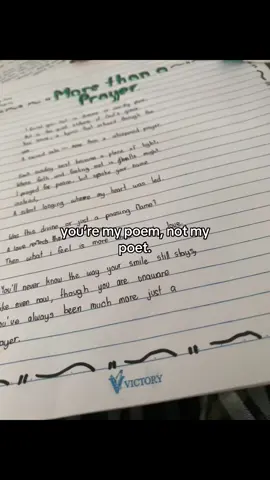 More than a
Prayer
I found you not in dreams or
but in the quiet
You were a hymn that echoed through the
A sacred vow — more than a whispered prayer.
Each sunday seat became a place of light,
Where faith and feeling met in
I prayed for peace, but spoke your name instead,
A silent longing where my heart was led.
Was this divine, or just a passing flame?
A love
Then what I feel is more
you're my poem, not my
poet.
You'll never know the way your smile still stays,
even now, though you are unaware
You've always been much more just a
prayer.
VICTORY